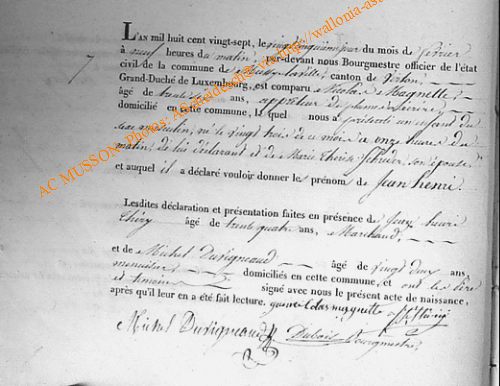 7
L'AN mil huit cent vingt-sept, le vingt cinquième jour du mois de février
à neuf heures du matin, par-devant nous Bourgmestre officier de l'état
civil de la commune de canton de Virton,
Grand-Duché de Luxembourg, est comparu Nicolas Magnette,
âgé de trente ans,
domicilié en cette commune, lequel nous a présenté un enfant du
sexe masculin, né le vingt trois de ce mois à onze heures du
matin, de lui déclarant et de Marie Thérèse son épouse
et auquel il a déclaré vouloir donner les prénom de Jean henri
Lesdites déclaration et présentation faites en présence de Jean henri
Thiry âgé de trente quatre ans, Marchand,
et de Michel Duvigneaud âgé de vingt deux ans,
menuisier, domiciliés en cette commune, et ont les père
et témoins signé avec nous le présent acte de naissance,
après qu'il leur en a été fait lecture.
Michel Duvigneaud Dubois Bourgmestre
AC MUSSON- Photos: http://wallonia-as